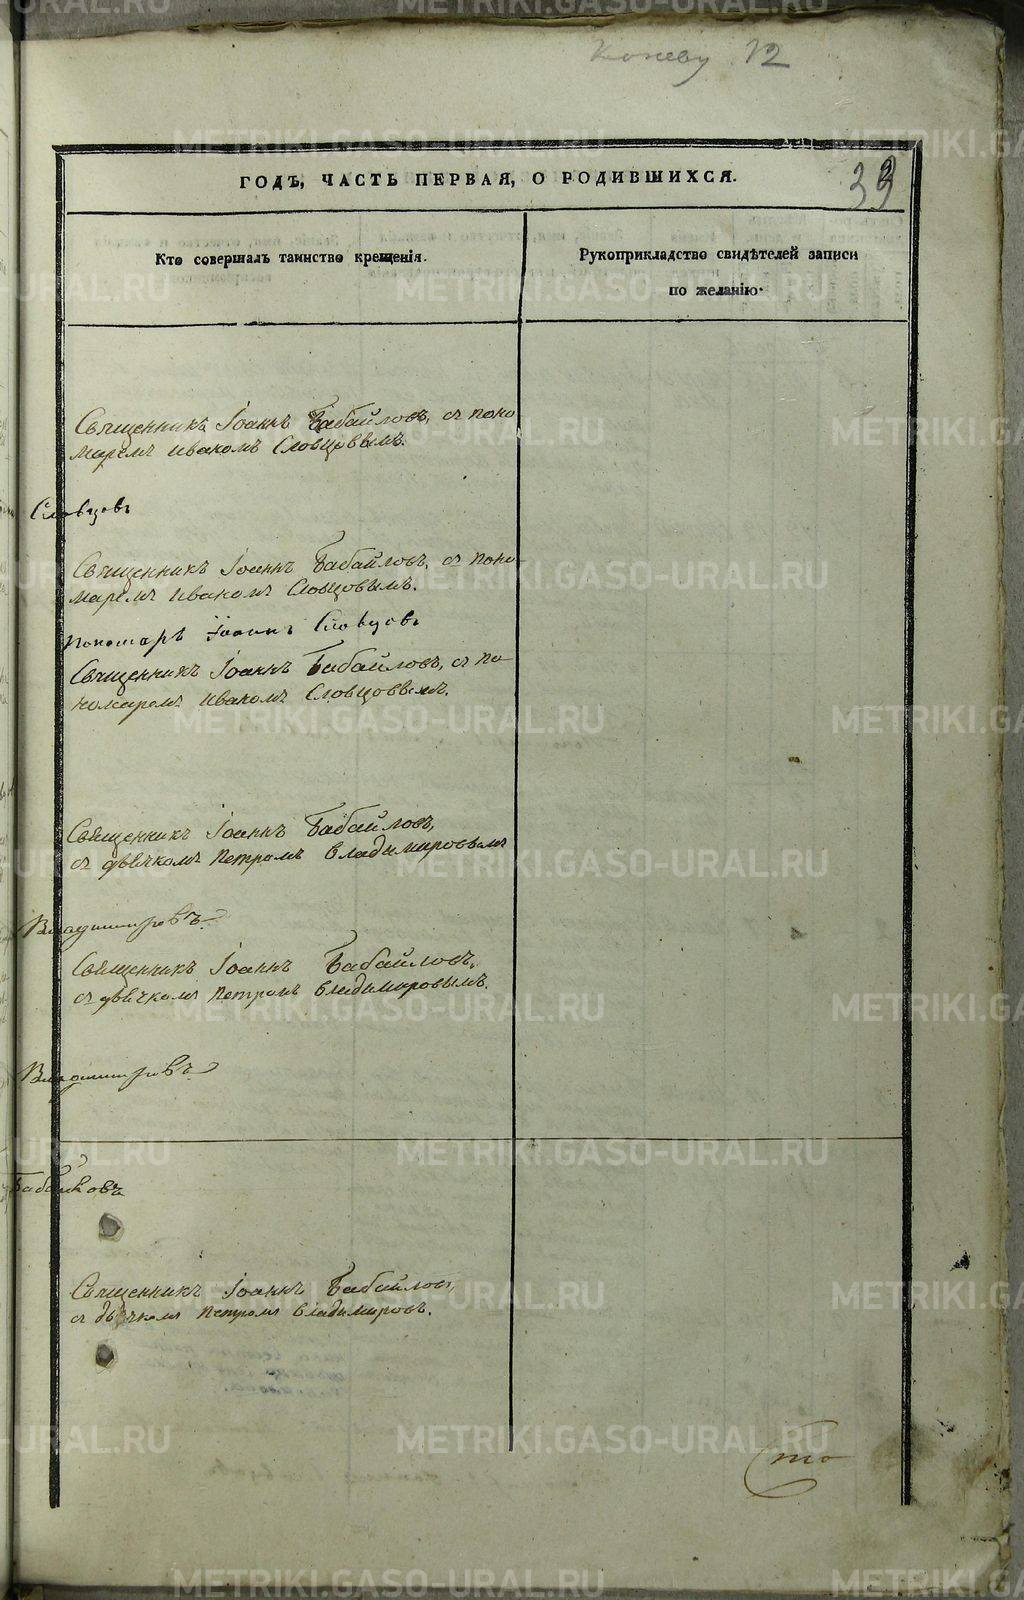 Коневу 12
ГОДЪ, ЧАСТЬ ПЕРВАЯ, О РОДИВШИХСЯ.
33
Кто совершалъ таинство крещенія.
Рукоприкладство свидѣтелей записи
по желанію.
Священникъ Іоаннъ Бабайловъ, съ поно
маремъ Иваномъ Словцовымъ.
Словцовъ
Священникъ Іоаннъ Бабайловъ, съ поно
маремъ Иваномъ Словцовымъ.
Пономарь Іоаннъ Словцовъ
Священникъ Іоаннъ Бабайловъ, съ по
номаремъ Иваномъ Словцовымъ.
Священникъ Іоаннъ Бабайловъ,
съ дьячкомъ Петромъ Владимировымъ
Владимировъ
Священникъ Іоаннъ Бабайловъ,
съ дьячкомъ Петромъ Владимировымъ.
Владимировъ
Священникъ Іоаннъ Бабайловъ,
съ дьячкомъ Петромъ Владимировъ.
METRIKI.GASO-URAL.RU